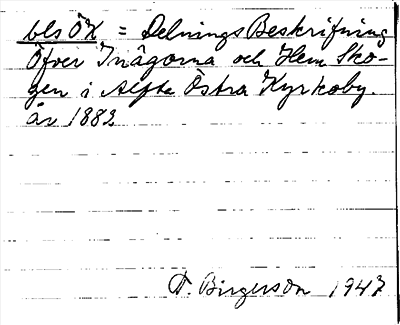 bls ÖK = Delnings Beskrifning
Öfver Inägorna och Hem Sko-
gen i Alfta Östra Kyrkoby.
år 1882
D. Birgerson 1947